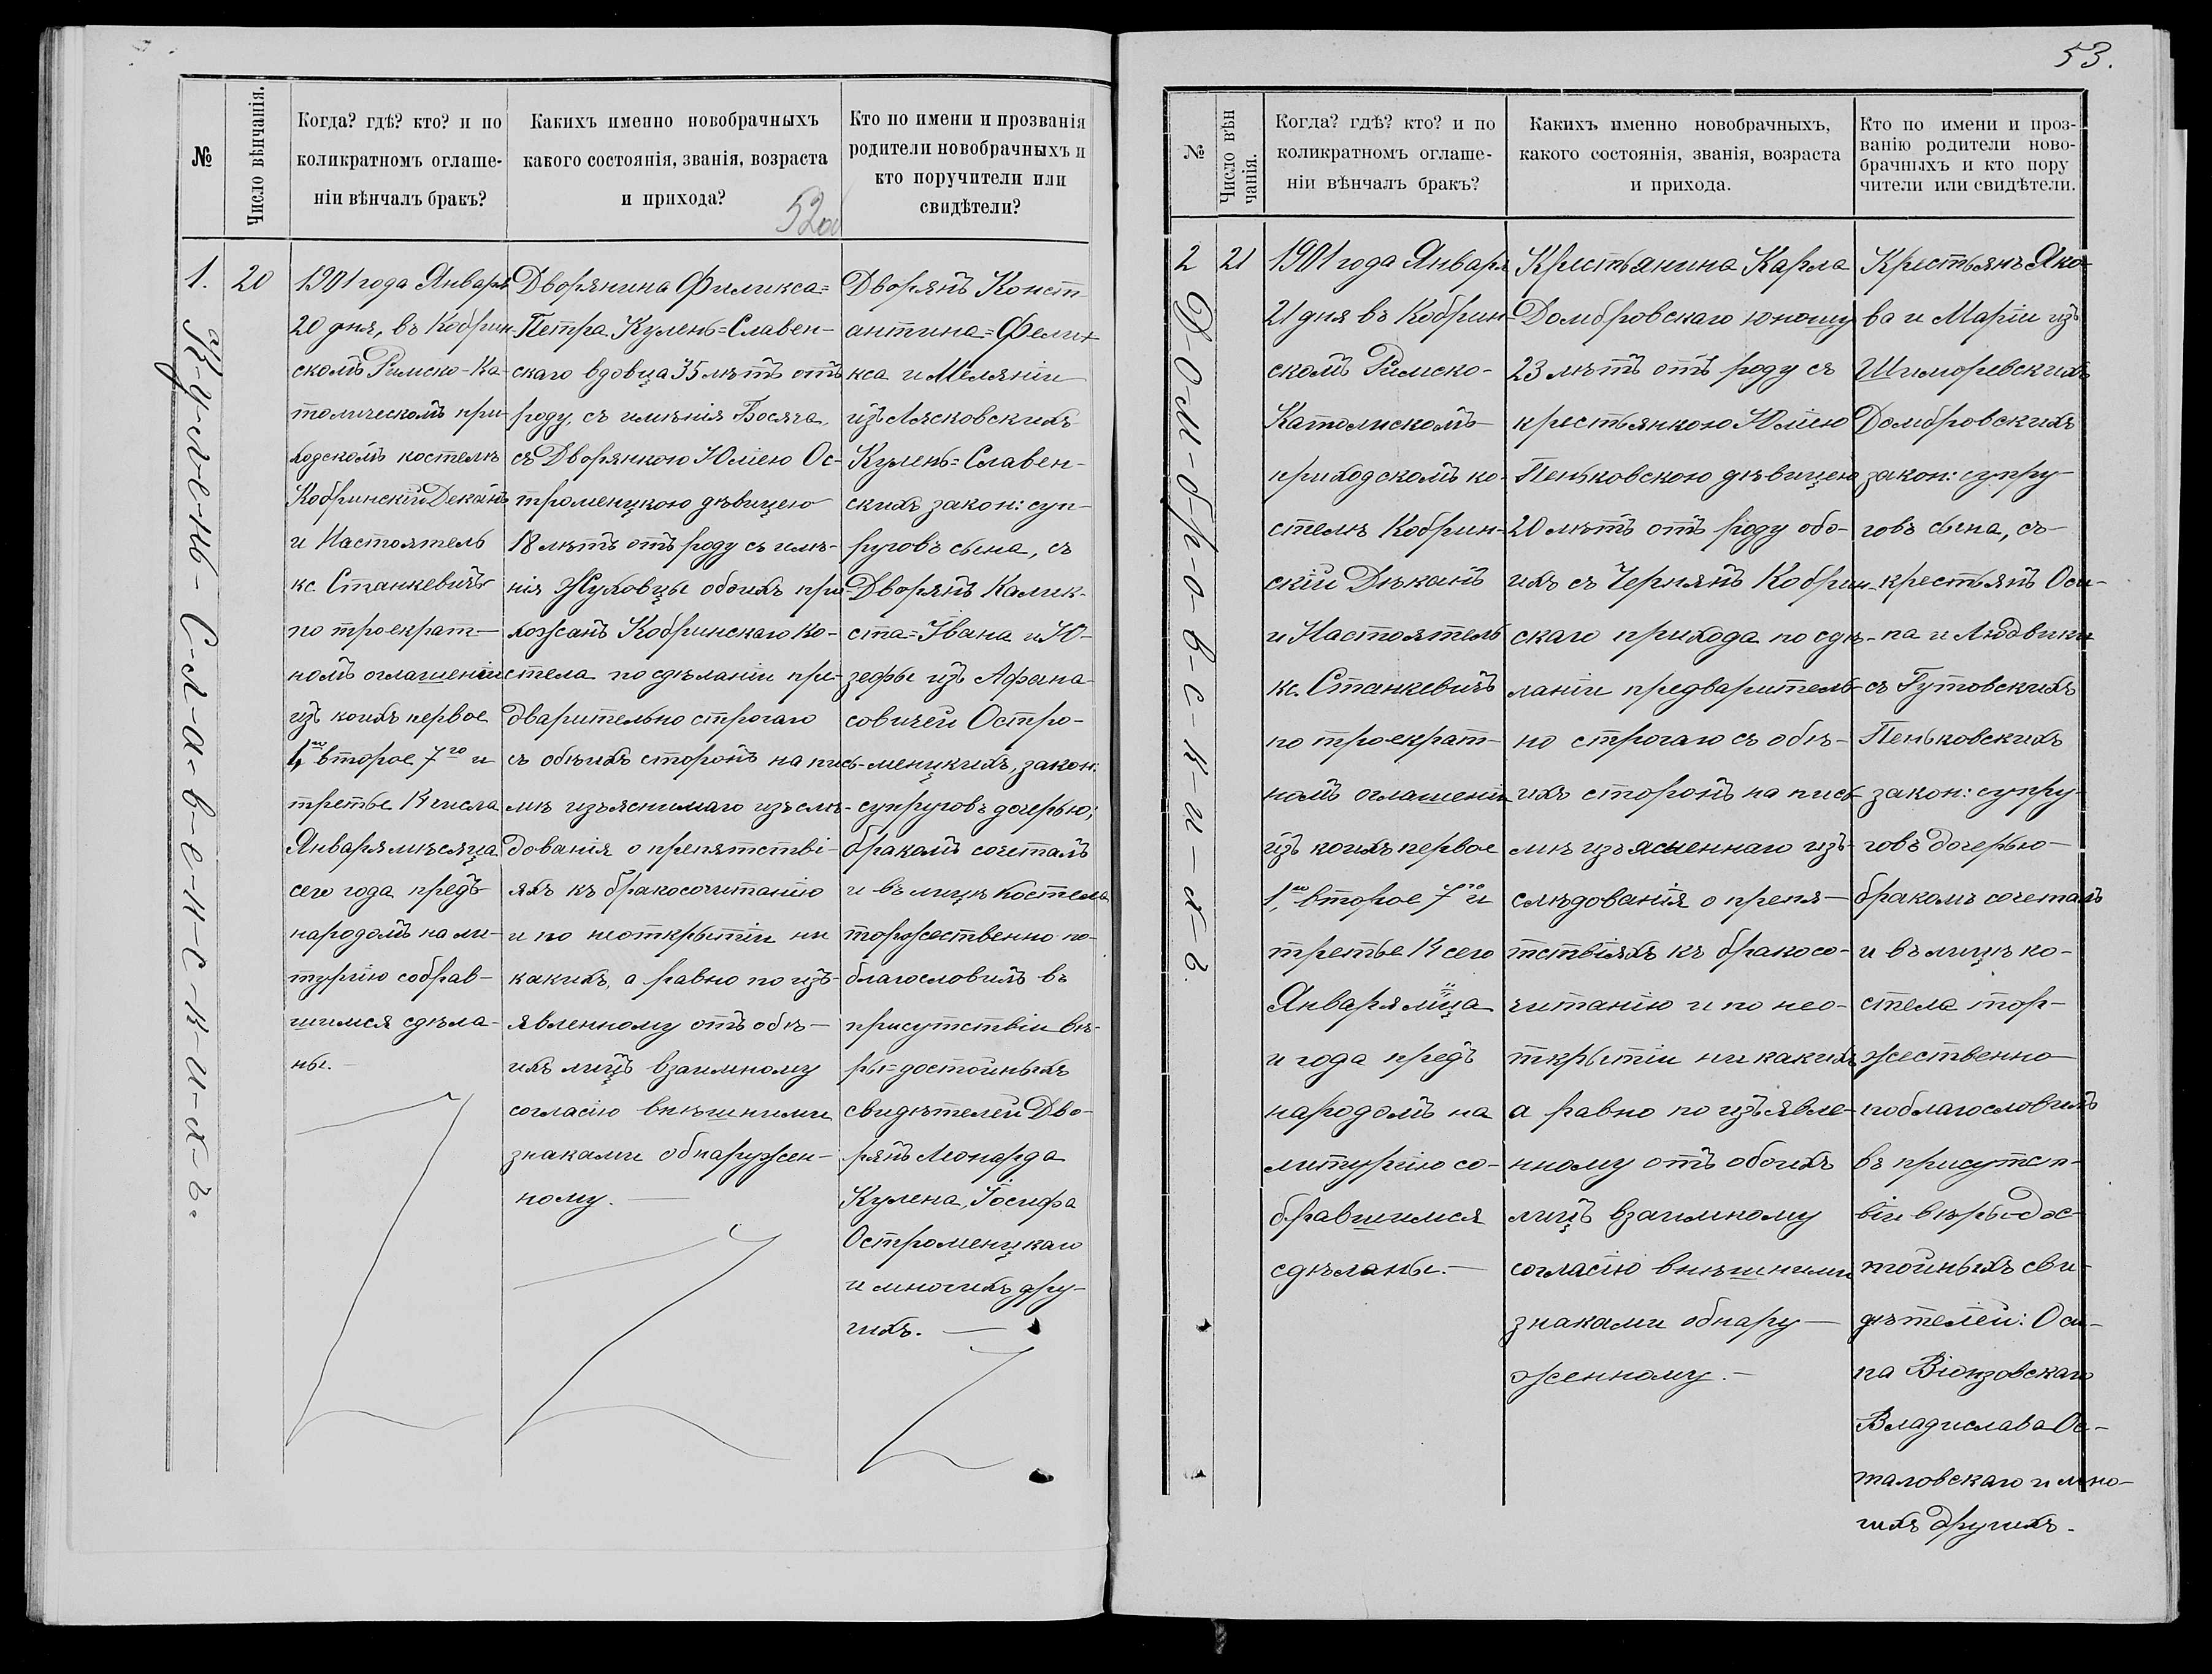 №
Число вѣнчанія.
Когда? гдѣ? кто? и по
коликратномъ оглаше-
ніи вѣнчалъ бракъ?
Какихъ именно новобрачныхъ
какого состоянія, званія, возраста
и прихода?
52об
Кто по имени и прозванія
родители новобрачныхъ и
кто поручители или
свидѣтели?
1.
К-у-л-е-нь-С-л-а-в-е-н-с-к-и-х-ъ.
20
1901 года Января
20 дня, въ Кобрин-
скомъ Римско-Ка-
толическомъ при-
ходскомъ костелѣ
Кобринскій Деканъ
и Настоятель
кс. Станкевичъ
по троекрат-
номъ оглашеніи
изъ коихъ первое
1го второе 7го и
третье 14 числа
Января мѣсяца
сего года предъ
народомъ на ли-
тургію собрав-
шимся сдѣла-
ны.-
Дворянина Филикса=
Петра Кулень=Славен-
скаго вдовца 35 лѣтъ отъ
роду, съ имѣнія Босяча,
съ Дворянкою Юліею Ос-
тромецкою дѣвицею
18 лѣтъ отъ роду съ имѣ-
нія Жуховцы обоихъ при-
хожанъ Кобринскаго ко-
стела по сдѣланіи пре-
дварительно строгаго
съ обѣихъ сторонъ на пись-
мѣ изъяснимаго изъслѣ-
дованія о препятстві-
яхъ къ бракосочитанію
и по неоткрытіи ни
какихъ, а равно по изъ-
явленному отъ обѣ-
ихъ лицъ взаимному
согласію внѣшними
знаками обнаружен-
ному.-
Дворянъ Конст-
антина=Фели-
кса и Меляніи
изъ Лясковскихъ
Кулень=Славен-
скихъ закон: суп-
руговъ сына, съ
Дворянъ Калик-
ста=Ивана и Ю-
зефы изъ Афана-
совичей Остро-
мецкихъ, закон:
супруговъ дочерью;
бракомъ сочеталъ
и въ лицѣ костела
торжественно по-
благословилъ въ
присутствіи вѣ-
ры=достойныхъ
свидѣтелей Дво-
рянъ Леонарда
Кулена, Іосифа
Остромецкаго
и многихъ дру-
гихъ.-
53.
№
Число вѣн
чанія.
Когда? гдѣ? кто? и по
коликратномъ оглаше-
ніи вѣнчалъ бракъ?
Какихъ именно новобрачныхъ,
какого состоянія, званія, возраста
и прихода.
Кто по имени и проз-
ванію родители ново-
брачныхъ и кто пору
чители или свидѣтели.
2
Д-о-м-б-р-о-в-с-к-и-х-ъ.
21
1901 года Января
21 дня въ Кобрин-
скомъ Римско-
Католискомъ
приходскомъ ко-
стелѣ Кобрин-
скій Дѣканъ
и Настоятель
кс. Станкевичъ
по троекрат-
номъ оглашеніи
изъ коихъ первое
1го, второе 7го и
третье 14 сего
Января мца
и года предъ
народомъ на
литургію со-
бравшимся
сдѣланы.-
Крестьянина Карла
Домбровскаго юношу
23 лѣтъ отъ роду съ
крестьянкою Юліею
Пеньковскою дѣвицею
20 лѣтъ отъ роду обо-
ихъ съ Чернянъ Кобрин-
скаго прихода по сдѣ-
ланіи предваритель-
но строгаго съ обѣ-
ихъ сторонъ на пись-
мѣ изъясненнаго изъ-
слѣдованія о препя-
тствіяхъ къ бракосо-
читанію и по нео-
ткрытіи ни какихъ
а равно по изъявле-
нному отъ обоихъ
лицъ взаимному
согласію внѣшними
знаками обнару-
женному.-
Крестьянъ Яко-
ва и Маріи изъ
Шиморевскихъ
Домбровскихъ
закон: супру-
говъ сына, съ
крестьянъ Оси-
па и Людвики
съ Гутовскихъ
Пеньковскихъ
закон: супру-
говъ дочерью
бракомъ сочеталъ
и въ лицѣ ко-
стела тор-
жественно
поблагословилъ
въ присутст-
віи вѣры-дос-
тойныхъ сви-
дѣтелей: Оси-
па Віонзовскаго
Владислава Ос-
таловскаго и мно-
гихъ другихъ.